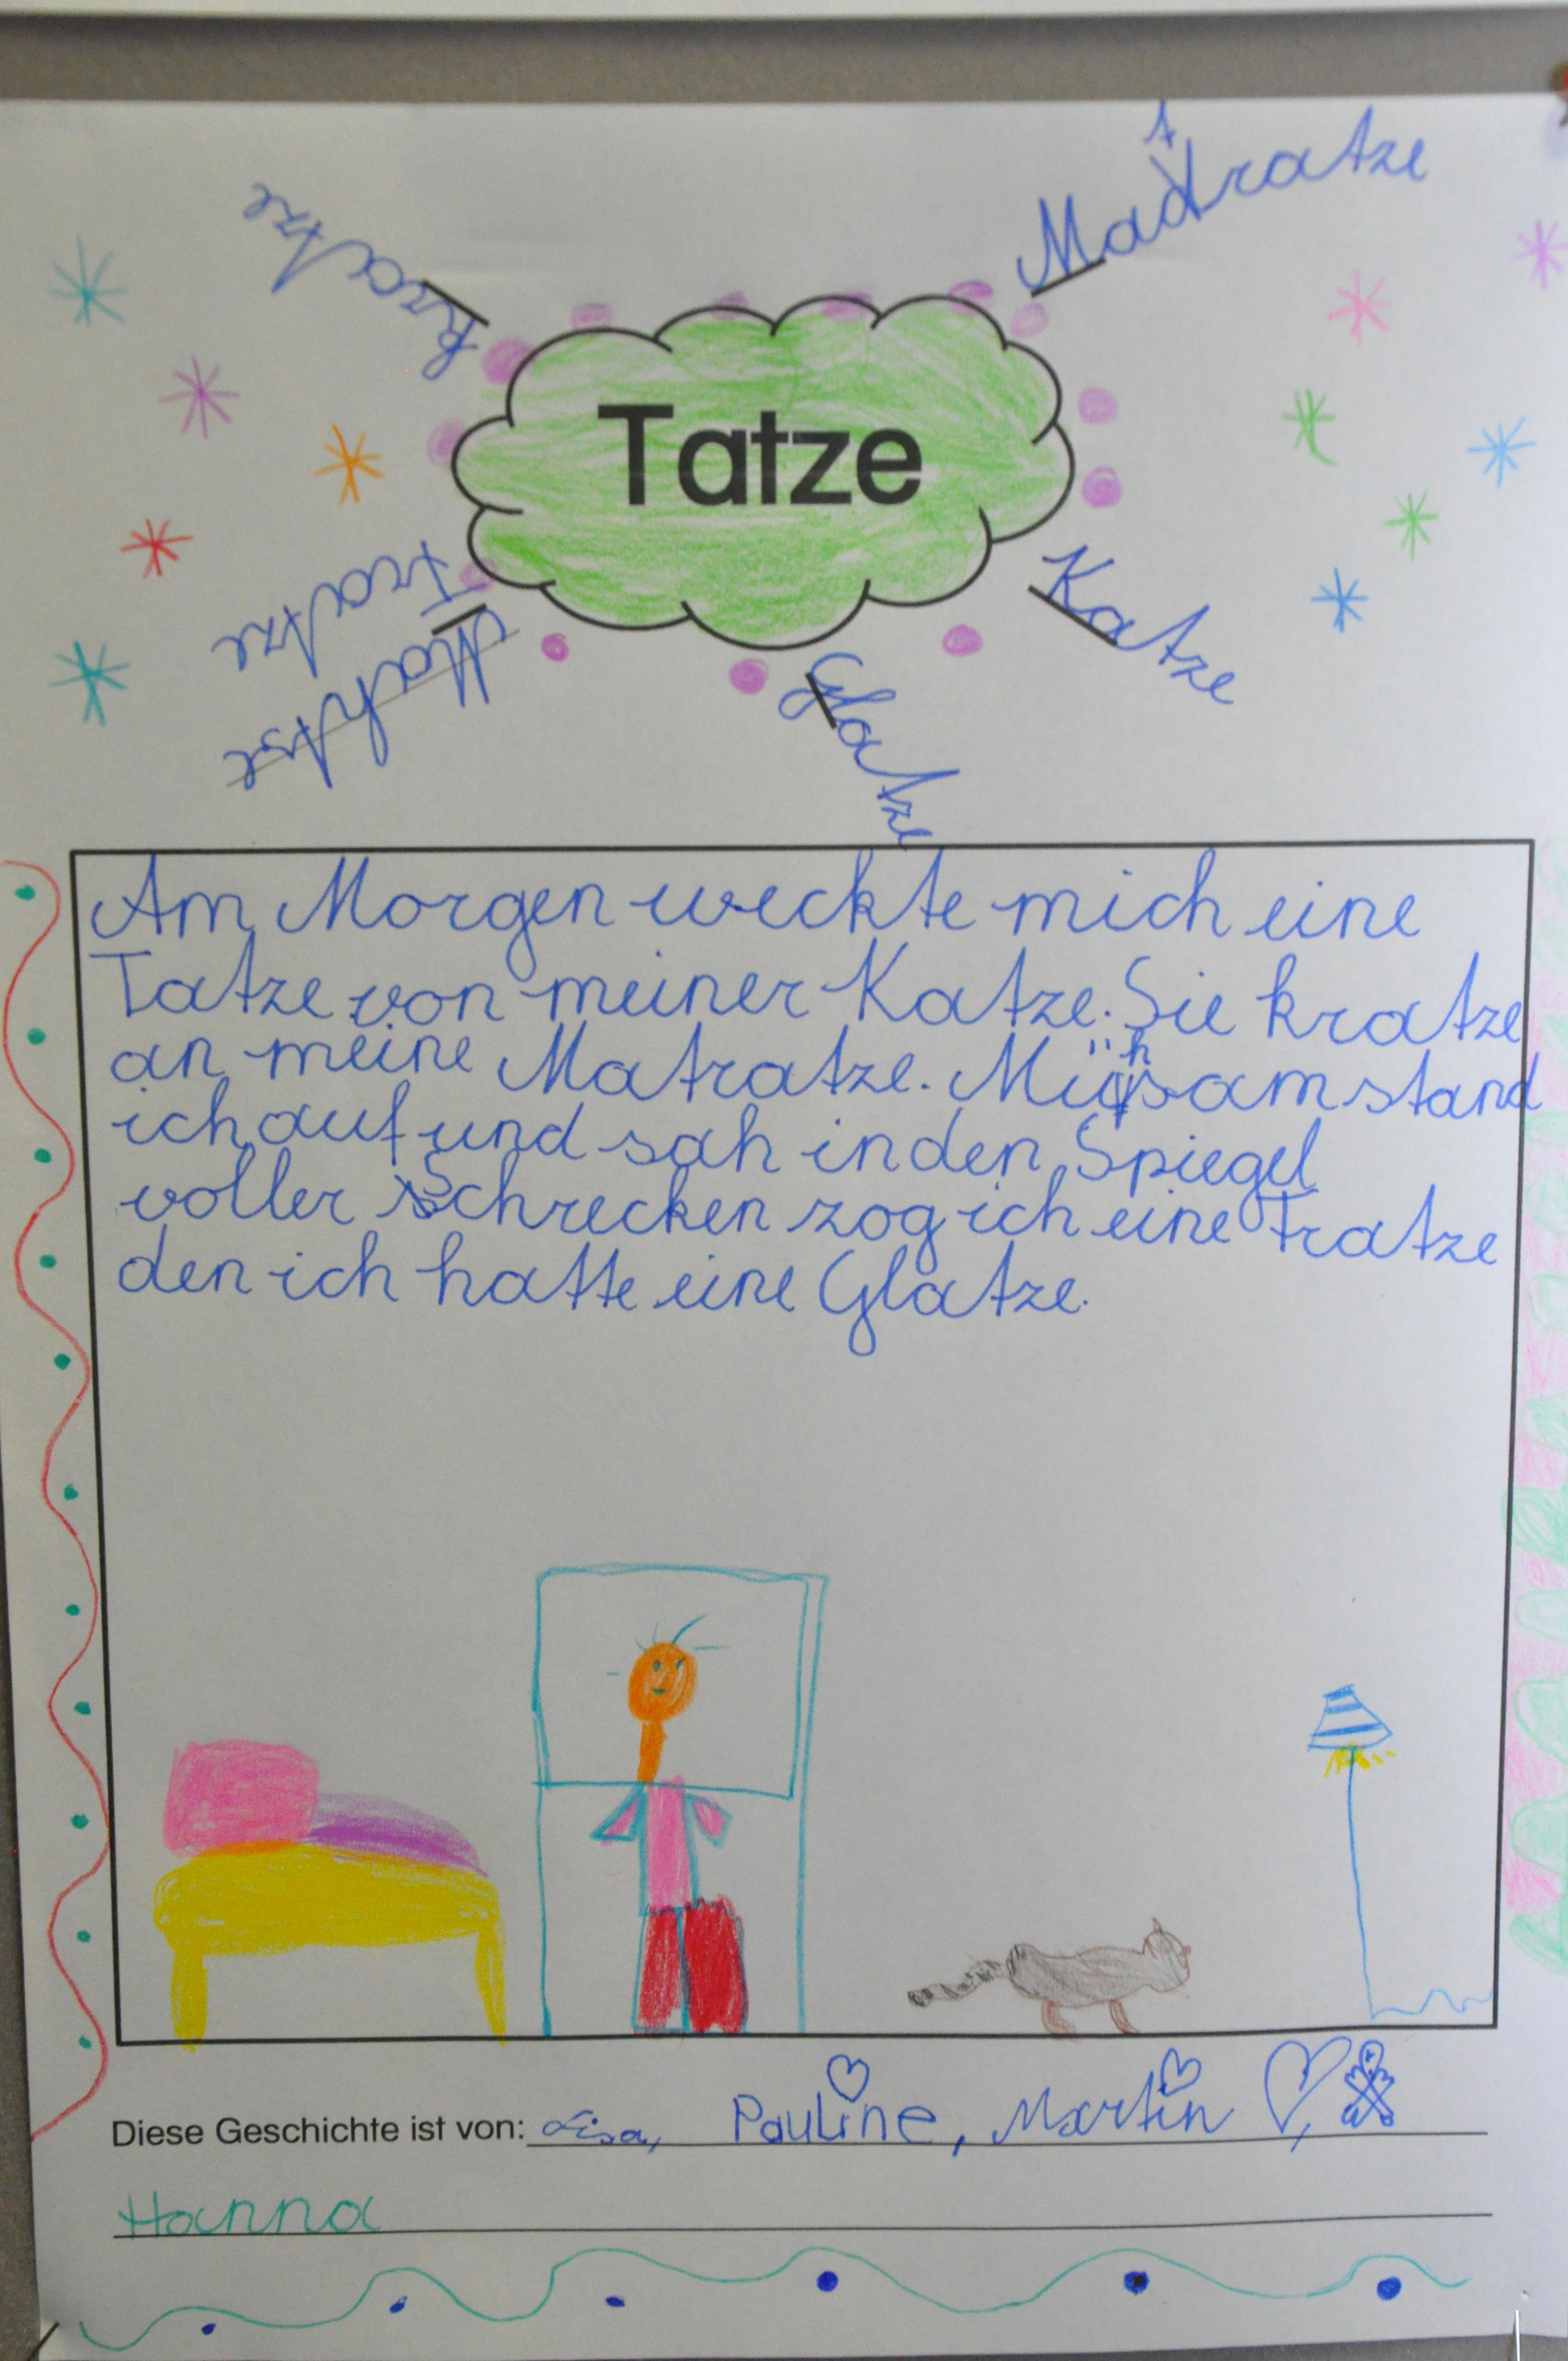 Kratze
Matratze
Tatze
Fratze
Katze
Glatze
Am Morgen weckte mich eine
Tatze von meiner Katze. Sie kratze
an meine Matratze. Mühsam stand
ich auf und sah in den Spiegel
voller Schrecken zog ich eine Fratze
den ich hatte eine Glatze.
Diese Geschichte ist von: Lisa, Pauline, Martin
Hanna